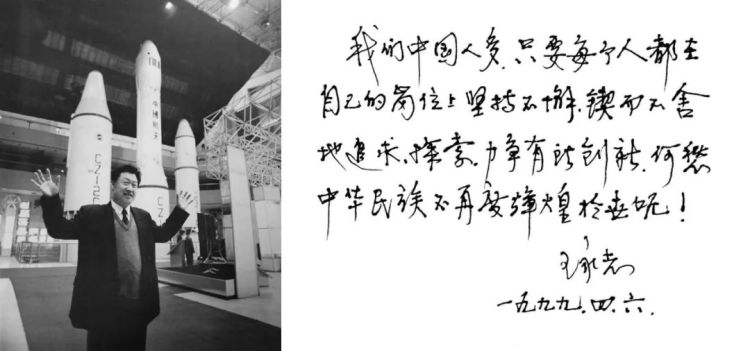 中國航天
CZ
我们中国人多，只要每个人都在
自己的岗位上坚持不懈、锲而不舍
地追求、探索、力争有所创新，何愁
中华民族不再度辉煌於世呢！
王永志
一九九九.四.六.